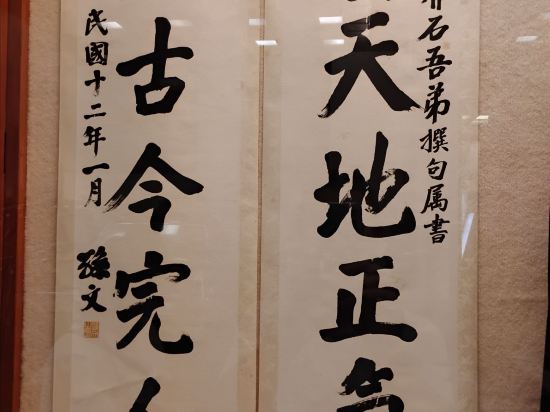 介石吾弟撰句属書
天地正氣
古今完人
民國十二年一月
孫文